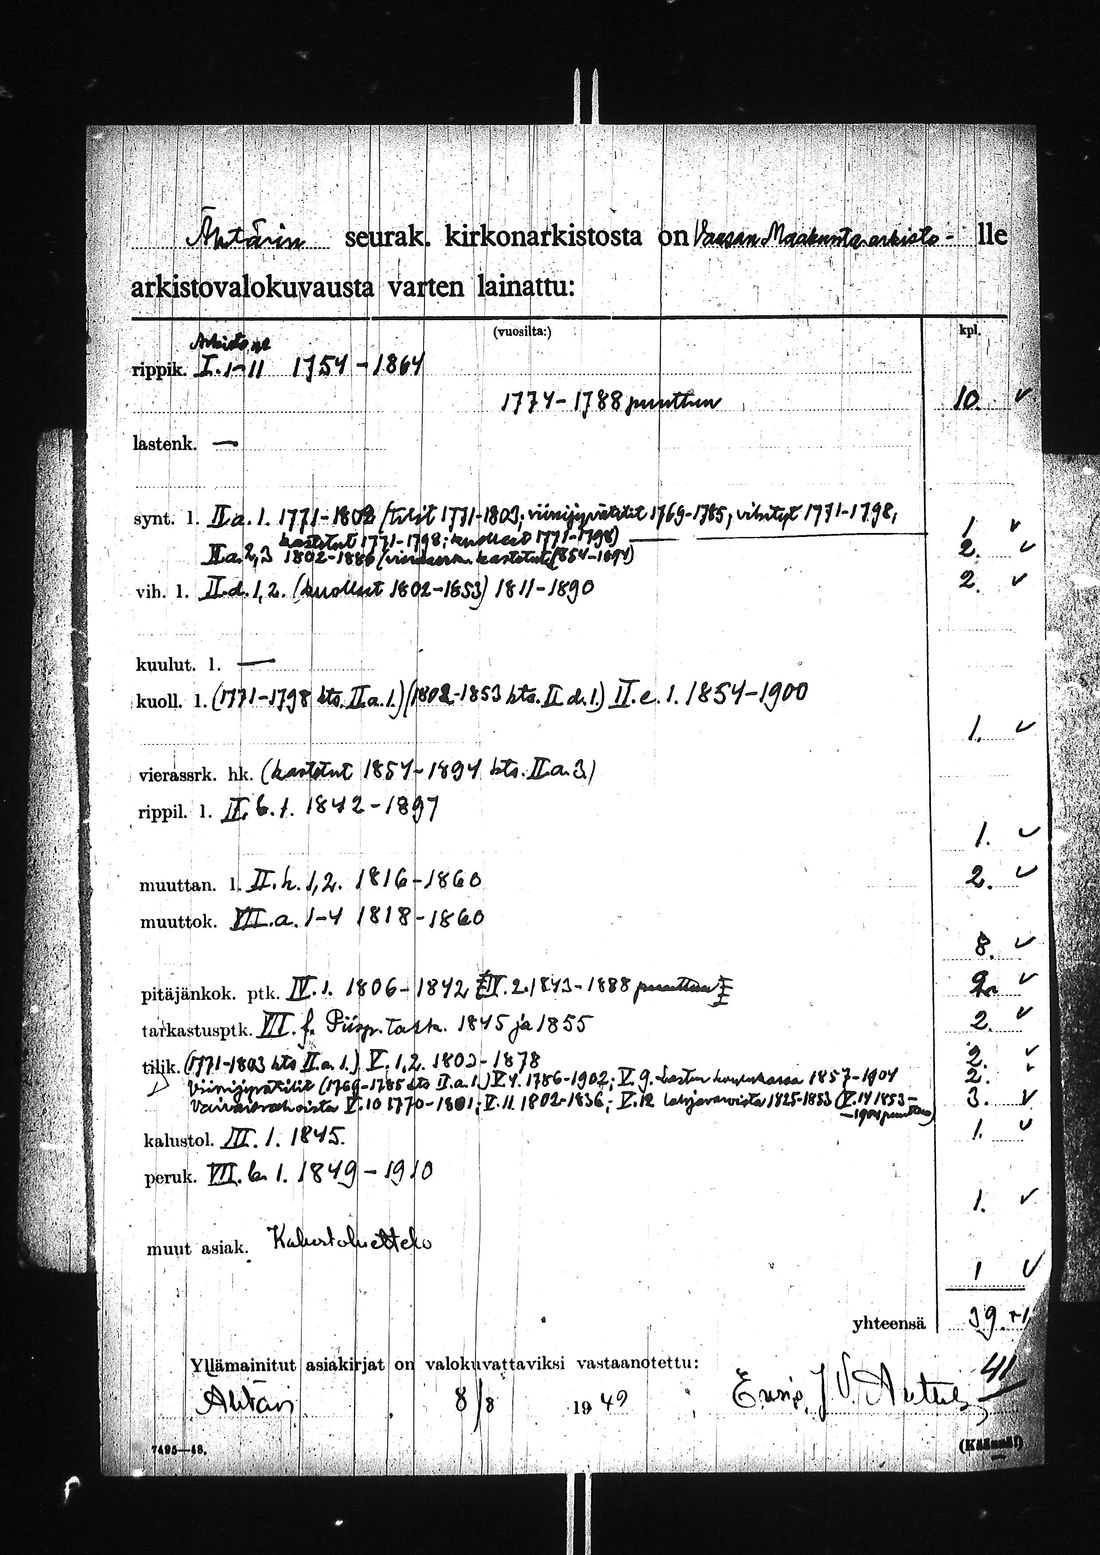 Ähtärin seurak. kirkonarkistosta on Vaasan Maakunta-arkisto- lle
arkistovalokuvausta varten lainattu:
(vuosilta:) kpl.
Arkisto n:o
rippik. I. 1-11 1754-1864
1774-1788 puuttuu 10. ✓
lastenk. —
synt. l. II a. 1. 1771-1802 (tilit 1771-1803, viinijyvätilit 1769-1785, vihityt 1771-1798,
kastetut 1771-1798; kuolleet 1771-1798) — 1 ✓
II a. 2, 3 1802-1886 (vierassrk. kastetut 1854-1894) 2. ✓
vih. l. II. d. 1, 2. (kuolleet 1802-1853) 1811-1890 2. ✓
kuulut. l. —
kuoll. l. (1771-1798 kts. II a. 1.) (1802-1853 kts. II d. 1.) II. e. 1. 1854-1900
1. ✓
vierassrk. hk. (kastetut 1854-1894 kts. II a. 3)
rippil. l. II. b. 1. 1842-1897
1. ✓
muuttan. l. II. h. 1, 2. 1816-1860 2. ✓
muuttok. VII. a. 1-4 1818-1860
8. ✓
pitäjänkok. ptk. IV. 1. 1806-1842 IV. 2. 1843-1888 puuttuu 2. ✓
tarkastusptk. VII. f. Piisp. tark. 1845 ja 1855 2. ✓
tilik. (1771-1803 kts II. a. 1.) V. 1, 2. 1803-1878 2. ✓
Viinijyvätilit (1769-1785 kts II. a. 1.) V. 4. 1786-1902; V. 9. Lasten 1857-1904 2. ✓
Vaivaisrahoista V. 10 1770-1801; V. 11. 1802-1836; V. 12 1825-1853 (V. 14 1853- 3. ✓
-1901 puuttuu)
kalustol. III. 1. 1845. 1. ✓
peruk. VII. b. 1. 1849-1910
1. ✓
muut asiak. Kalustoluettelo
1 ✓
yhteensä 39. +1
41
Yllämainitut asiakirjat on valokuvattaviksi vastaanotettu:
Ähtäri 8/8 1949 J. V.
7495—48. (Käännä!)